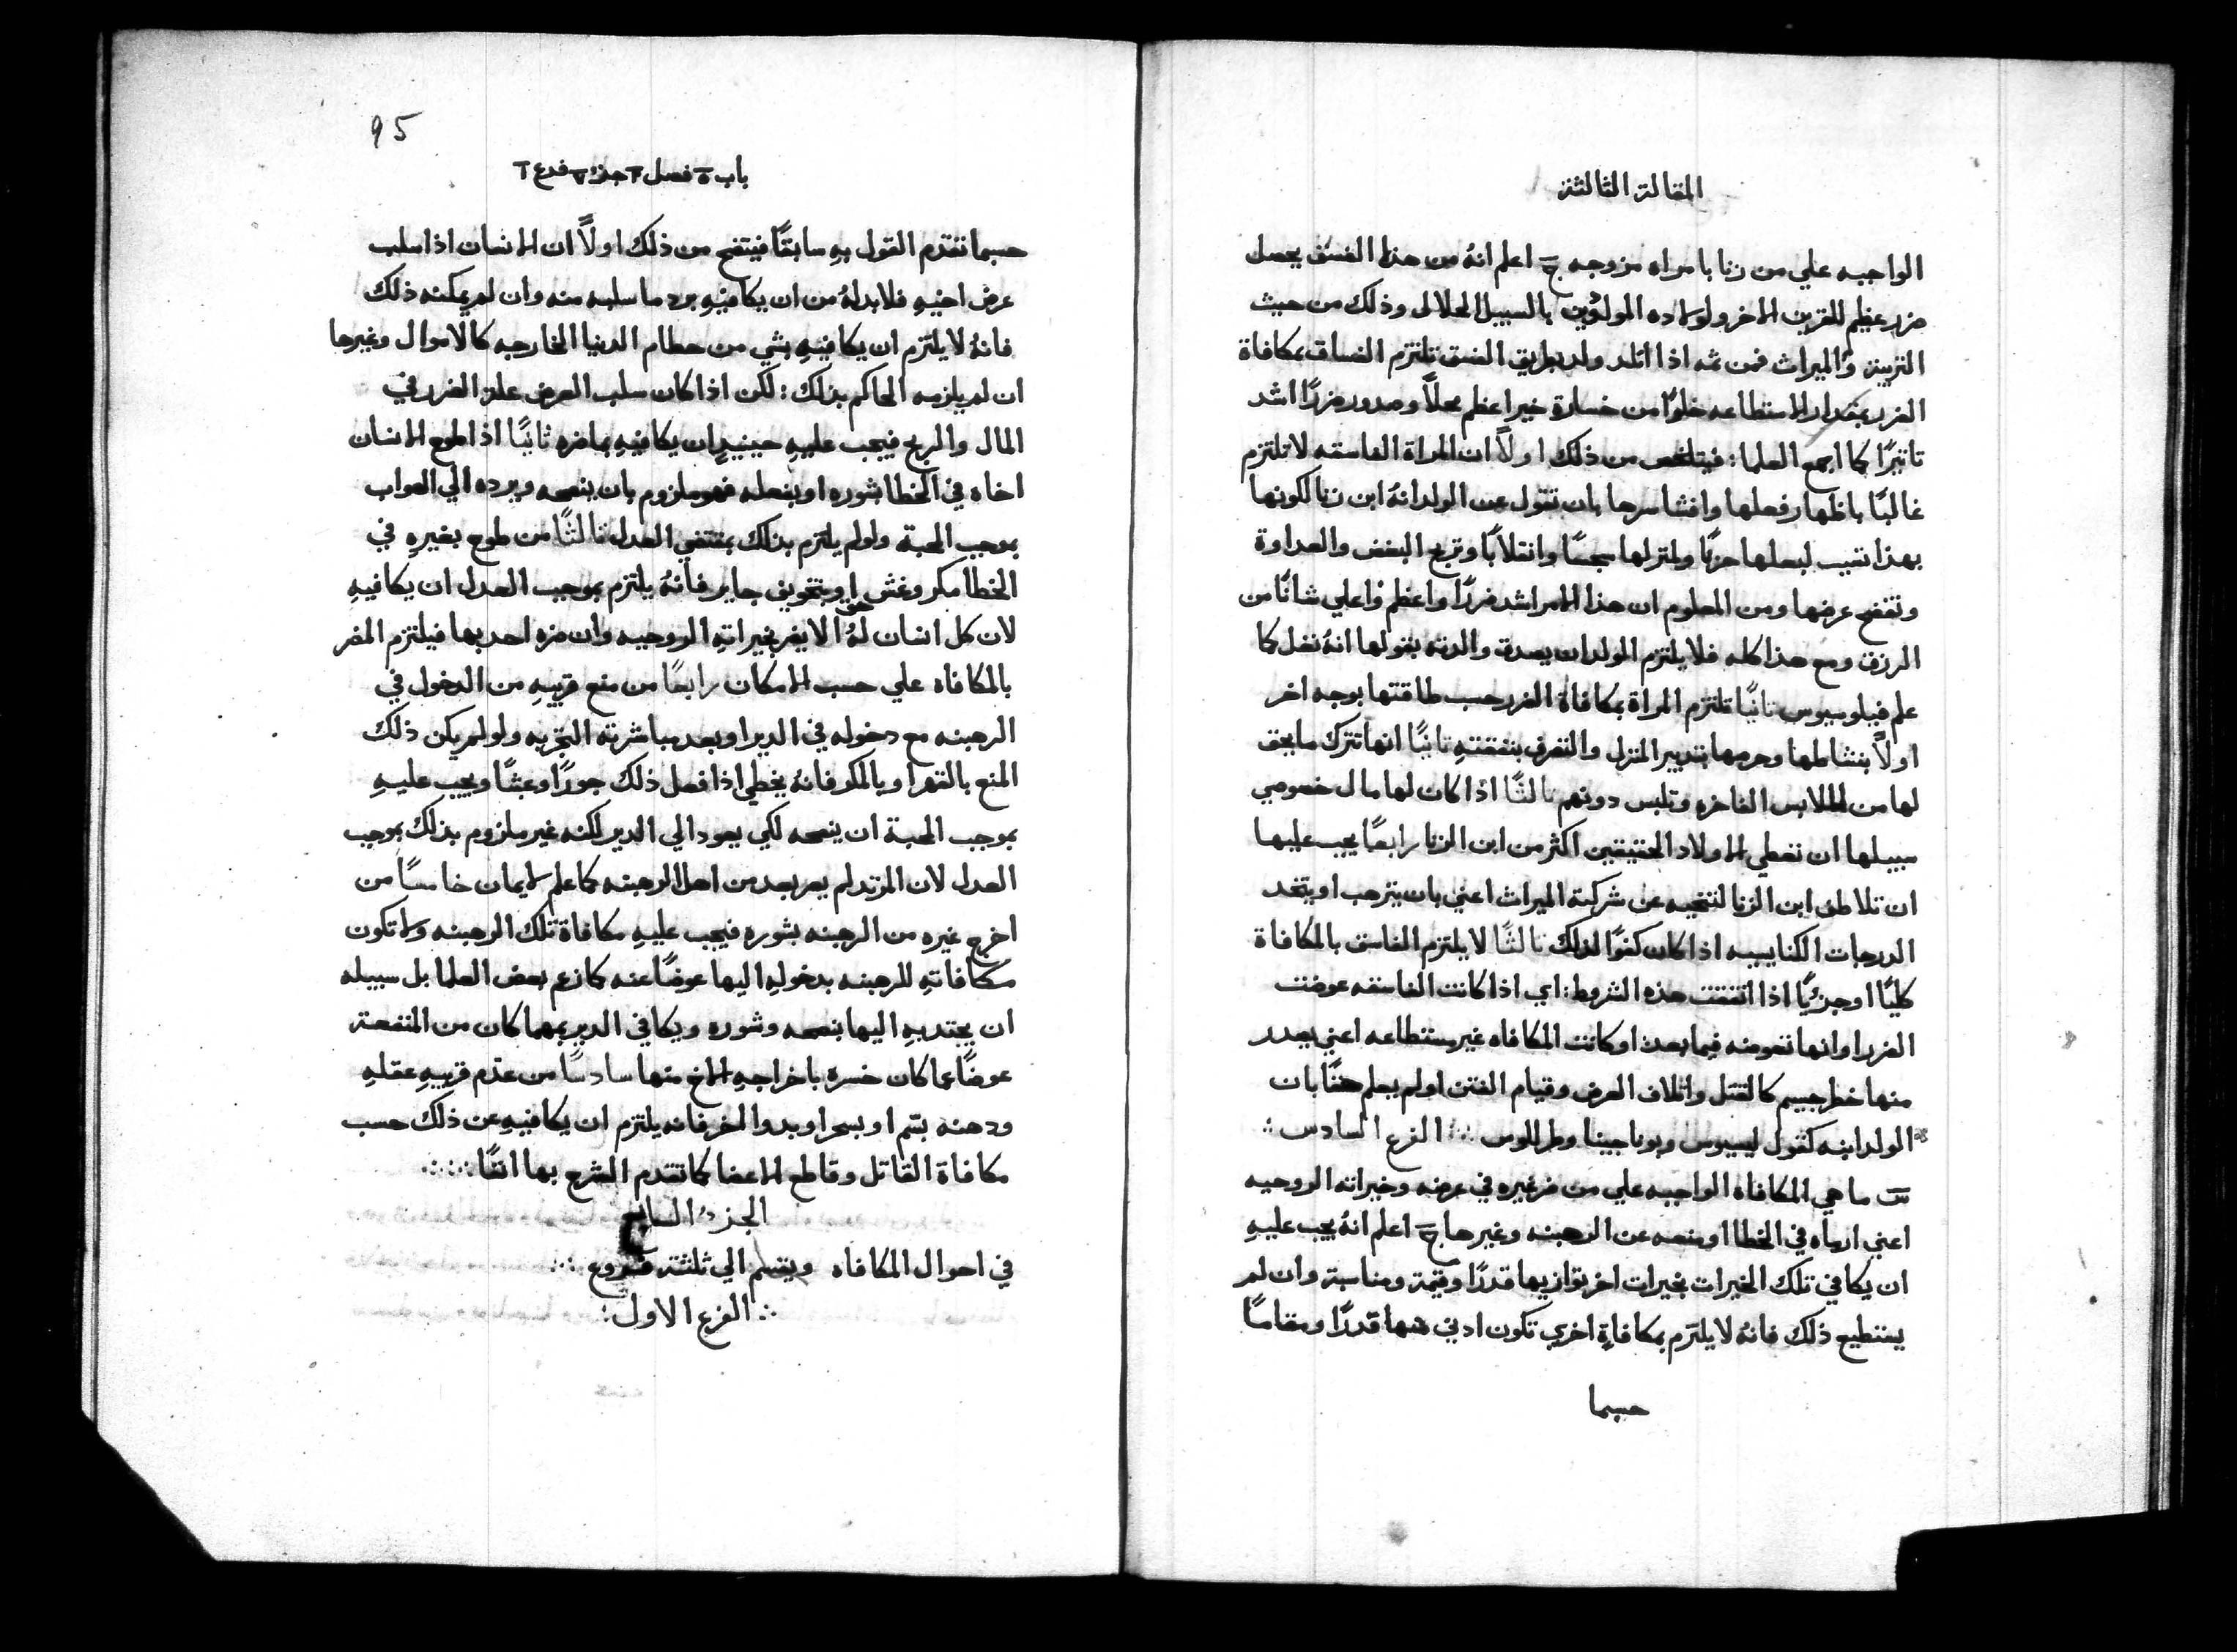 المقالة الثالثة
الواجبه علي من زنا بامراه مزوجه ج اعلم انهُ من هذا الفسق يحصل
ضرر عظيم للقرين الاخر ولاولاده المولودين بالسبيل الحلال وذلك من حيث
التربية والميراث فمن ثمه اذا اتلد ولد بطريق الفسق تلتزم الفساق بمكافاة
الضرر بمقدار الاستطاعه خلوًا من خسارة خير اعظم محلاً وصدور ضررًا اشد
تاثيرًا كما اجمع العلما: فيتلخص من ذلك اولاً ان المراة الفاسقه لا تلتزم
غالبًا باظهار فعلها وافشا سرها بان تقول عن الولد انهُ ابن زنا لكونها
بهذا تسبب لبعلها حزنًا ولمنزلها سجسًا وانقلابًا وتربح البغض والعداوة
وتفضح عرضها ومن المعلوم ان هذا الامر اشد ضررًا واعظم واعلي شانًا من
الرزق ومع هذا كله فلا يلتزم الولد ان يصدق والدته بقولها انهُ نغل كما
علم فيلوسيوس ثانيًا تلتزم المراة بمكافاة الضرر حسب طاقتها بوجه اخر
اولاً بنشاطها وحرصها بتدبير المنزل والتصرف بنفقتهِ ثانيًا انها تترك ما يحق
لها من الملابس الفاخره وتلبس دونهم ثالثًا اذا كان لها مال خصوصي
سبيلها ان تعطي الاولاد الحقيقين اكثر من ابن الزنا رابعًا يجب عليها
ان تلاطف ابن الزنا لتنحيه عن شركة الميراث اعني بان يترهب او يتخد
الدرجات الكنايسيه اذا كان كفوًا لذلك ثالثًا لا يلتزم الفاسق بالمكافاة
كليًا او جزئيًا اذا اتفقت هذه الشروط: اي اذا كانت الفاسقه عوضت
الضرر او انها تعوضه فيما بعد: او كانت المكافاه غير مستطاعه اعني يصدر
منها خطر جسيم كالقتل واتلاف العرض وقيام الفتن او لم يعلم حقًا بان
الولد ابنه كقول ليسيوس وبوناجينا وطرللوس ∴ الفرع السادس ∴
س ما هي المكافاه الواجبه علي من ضر غيره في عرضه وخيراته الروحيه
اعني ارماه في الخطا او منعه عن الرهبنه وغيرها ج اعلم انهُ يجب عليهِ
ان يكافي تلك الخيرات بخيرات اخر توازيها قدرًا وقيمة ومناسبة وان لم
يستطيع ذلك فانهُ لا يلتزم بمكافاةٍ اخري تكون ادني منها قدرًا ومقامًا
حسبما
95
باب ٥ فصل ٣ جزء ٦ فرع ٦
حسبما تقدم القول بهِ سابقًا فيتضح من ذلك اولاً ان الانسان اذا سلب
عرض اخيهِ فلا بد لهُ من ان يكافيهِ برد ما سلبه منه وان لم يمكنه ذلك
فانهُ لا يلتزم ان يكافيهِ بشي من حطام الدنيا الخارجه كالاموال وغيرها
ان لم يلزمه الحاكم بذلك: لكن اذا كان سلب العرض علة الضرر في
المال والربح فيجب عليهِ حينيدٍ ان يكافيهِ بما ضره ثانيًا اذا اطوع الانسان
اخاه في الخطا بشوره او بفعله فهو ملزوم بان ينصحه ويرده الي الصواب
بموجب المحبة ولو لم يلتزم بذلك بمقتضي العدل ثالثًا من طوح بغيرهِ في
الخطا بمكر وغش او بتخويف جاير فانهُ يلتزم بموجب العدل ان يكافيهِ
لان كل انسان لهُ حق الا يضر بخيراتهِ الروحيه وان ضره احد بها فيلتزم المضر
بالمكافاه علي حسب الامكان رابعًا من منع قريبهِ من الدخول في
الرهبنه مع دخوله في الدير او بعد مباشرته التجربه ولو لم يكن ذلك
المنع بالقهر او بالمكر فانهُ يخطي اذا فعل ذلك جورًا وعبثًا ويجب عليهِ
بموجب المحبة ان ينصحه لكي يعود الي الدير لكنه غير ملزوم بذلك بموجب
العدل لان المرتد لم يعر بعد من اهل الرهبنه كما علم لايمان خامسًا من
اخرج غيره من الرهبنه بشوره فيجب عليهِ مكافاة تلك الرهبنه ولا تكون
مكافاتهِ للرهبنه بدخولهِ اليها عوضًا عنه كما زعم بعض العلما بل سبيله
ان يجتديهِ اليها بنصحه وشوره ويكافي الدير بمهما كان من المنفعة
عوضًا عما كان خسره باخراجهِ الاخ منها سادسًا من عدّم قريبهِ عقلهِ
ودهنه بسّم او بسحر او بدوا اخر فانه يلتزم ان يكافيهِ عن ذلك حسب
مكافاة القاتل وقاطع الاعضا كما تقدم الشرح بها انفًا ∴
الجزء السابع
في احوال المكافاه ويقسم الي ثلثة فروع ∴
∴ الفرع الاول: